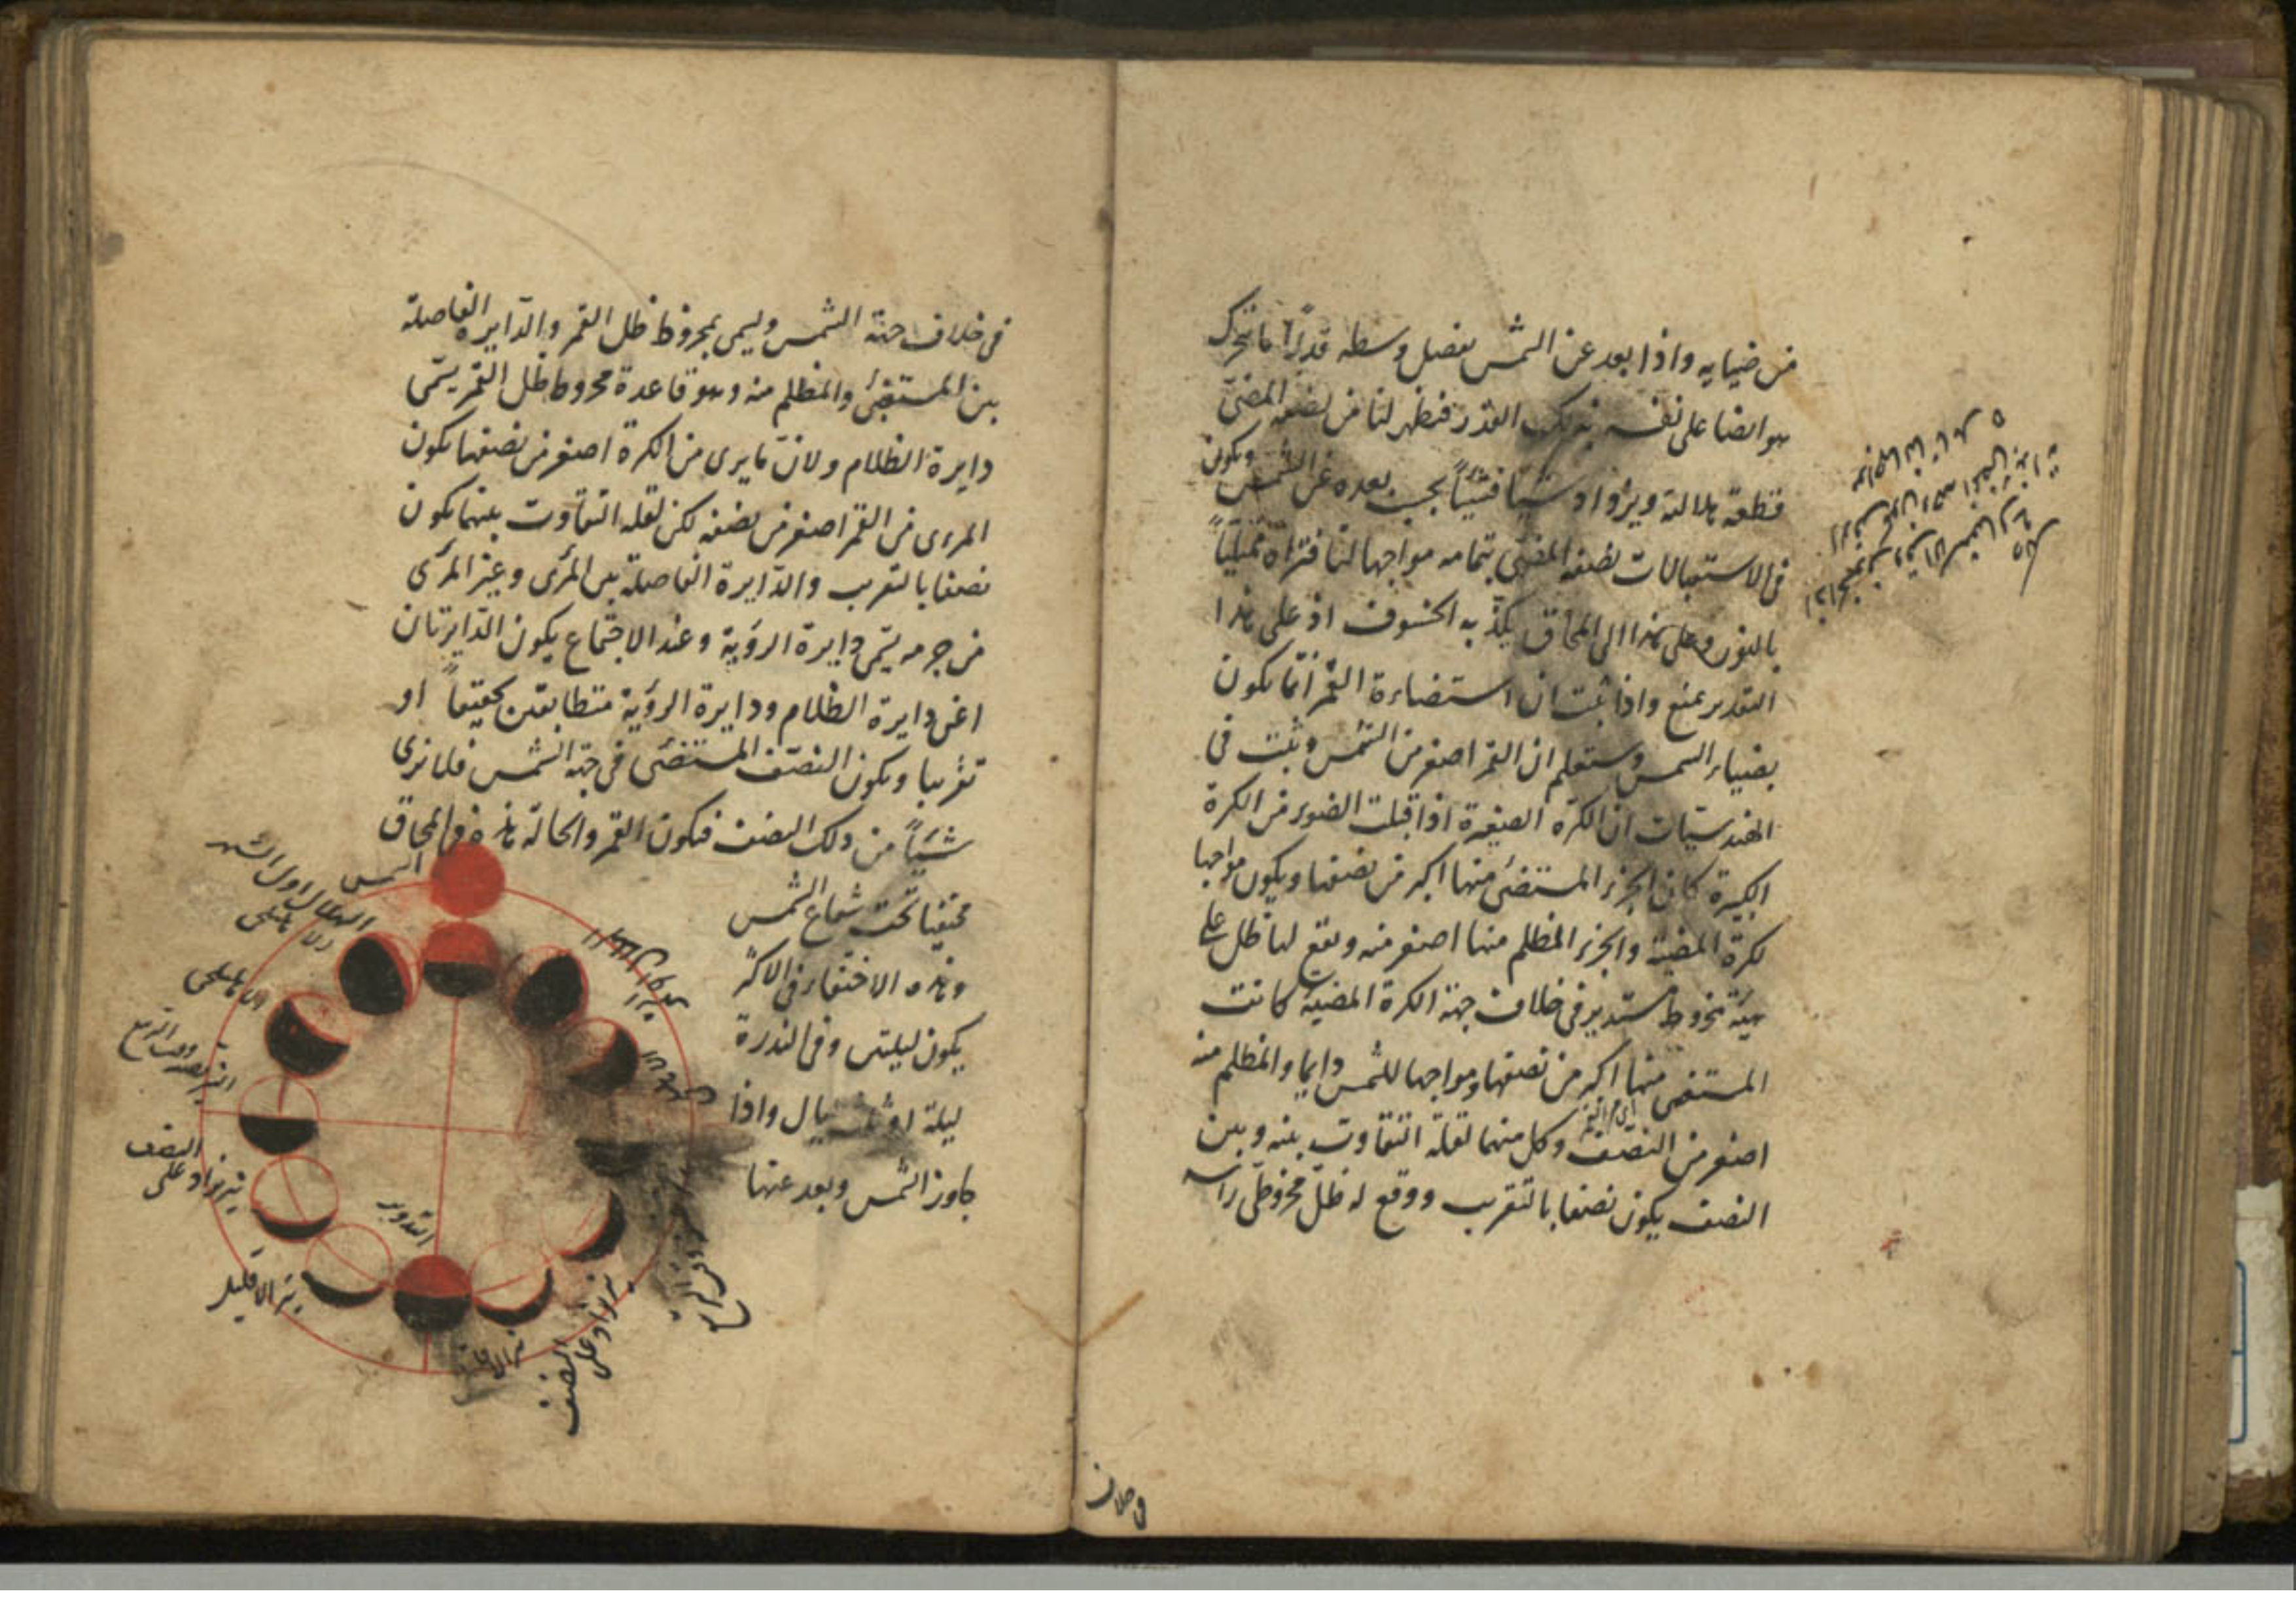 من ضيايه واذا بعد عن الشمس بفضل وسطه قدرًا ما تحرك
هو ايضا على نفسه بذلك القدر فيظهر لنا من نصفه المضئ
قطعة هلالية ويزداد شيئا فشيئاً بحسب بعده عن الشمس ويكون
فى الاستقبالات نصفه المضئ بتمامه مواجها لنا فنراه ممتلياً
بالنور وعلى هذا الى المحاق يكذبه الخسوف اذ على هذا
التقدير يمتنع واذا ثبت ان استضاءة القمر انما يكون
بضياء الشمس وستعلم ان القمر اصغر من الشمس وثبت فى
الهندسيات ان الكرة الصغيرة اذا قبلت الضوء من الكرة
الكبيرة كان الجزء المستضئ منها اكبر من نصفها ويكون مواجها
لكرة المضية والجزء المظلم منها اصغر منه ويقع لها ظل على
هيئة مخروط مستدير فى خلاف جهة الكرة المضيئة كانت
المستضئ منها اكبر من نصفها ومواجها للشمس دايما والمظلم منه
اصغر من النصف وكل منهما لقلة التفاوت بينه وبين
النصف يكون نصفا بالتقريب ووقع له ظل مخروطى راسه
فى خلاف
فى خلاف جهة الشمس وليمى بمخروط ظل القمر والدايرة الفاصلة
بين المستضئ والمظلم منه وهو قاعدة مخروط ظل القمر يسمى
دايرة الظلام ولان ما يرى من الكرة اصغر من نصفها يكون
المرءى من القمر اصغر من نصفه لكن لقلة التفاوت بينهما يكون
نصفا بالتقريب والدايرة الفاصلة بين المرئى وغير المرئى
من جرمه يسمى دايرة الرؤية وعند الاجتماع يكون الدايرتان
اعنى دايرة الظلام ودايرة الرؤية متطابقتين تحقيقاً او
تقريبا ويكون النصف المستضئ فى جهة الشمس فلا نرى
شيئاً من ذلك النصف فيكون القمر والحالة هذه فى المحاق
مختفيا تحت شعاع الشمس
وهذه الاختفاء فى الاكثر
يكون ليلتين وفى الندرة
ليلة او ثلث ليال واذا
جاوز الشمس وبعد عنها
الشمس
الهلال اول الشهر
النصف
نير يزاد على
نير الا قليل
التدوير
نير الا قليل
نير يزاد على
النصف